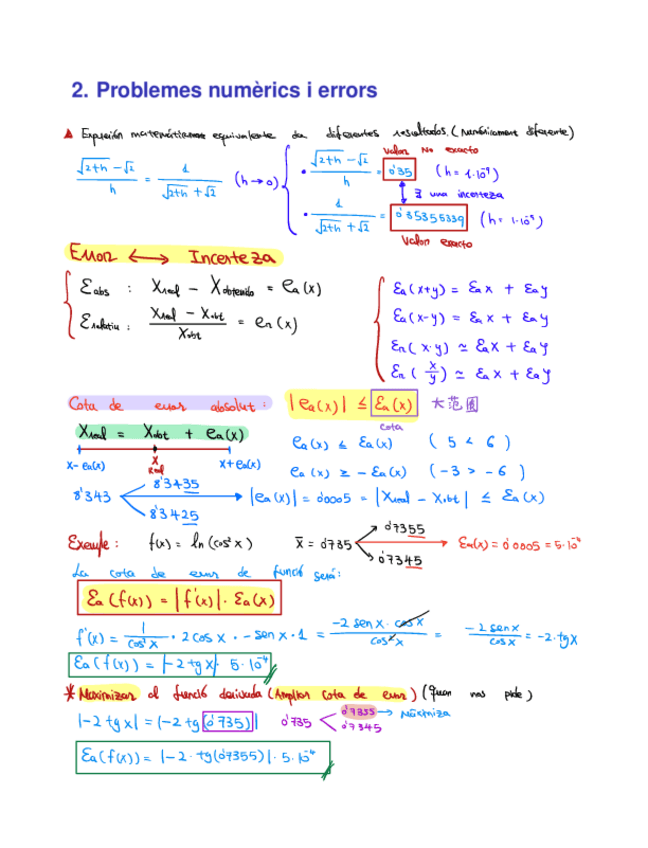 2. Problemes numèrics i errors
Expresión matemáticamente equivalente da diferentes resultados. (Numéricament diferente)
Valor No exacto
(√(2+h) - √2)/h = 1/(√(2+h) + √2) (h→0) { • (√(2+h) - √2)/h = 0'35 (h = 1·10⁻⁹)
∃ una incerteza
• 1/(√(2+h) + √2) = 0'35355339 (h = 1·10⁻⁹)
Valor exacto
Error ⟷ Incerteza
Eabs : Xreal - Xobtenido = ea(x)
Erelatiu : (Xreal - Xobt)/Xobt = er(x)
Ea(x+y) = Eax + Eay
Ea(x-y) = Eax + Eay
Er(x·y) ≃ Eax + Eay
Er(x/y) ≃ Eax + Eay
Cota de error absolut : |ea(x)| ≤ Ea(x) 大范围
cota
Xreal = Xobt + ea(x)
ea(x) ≤ Ea(x) (5 < 6)
x-ea(x) X Real x+ea(x)
ea(x) ≥ -Ea(x) (-3 > -6)
8'343 8'3435 8'3425 |ea(x)| = 0'0005 = |Xreal - Xobt| ≤ Ea(x)
Exemple : f(x) = ln(cos²x) x̄ = 0'735 0'7355 0'7345 Ea(x) = 0'0005 = 5·10⁻⁴
La cota de error de funció será:
Ea(f(x)) = |f'(x)|·Ea(x)
f'(x) = 1/cos²x · 2cosx · -senx · 1 = (-2senx·cosx)/cos²x = -2senx/cosx = -2·tgx
Ea(f(x)) = |-2tgx| 5·10⁻⁴
* Maximizar el funció derivada (Ampliar cota de error) (Quan nos pide)
|-2tgx| = |-2tg(0'735)| 0'735 0'7355 → Maximiza
0'7345
Ea(f(x)) = |-2·tg(0'7355)|·5·10⁻⁴